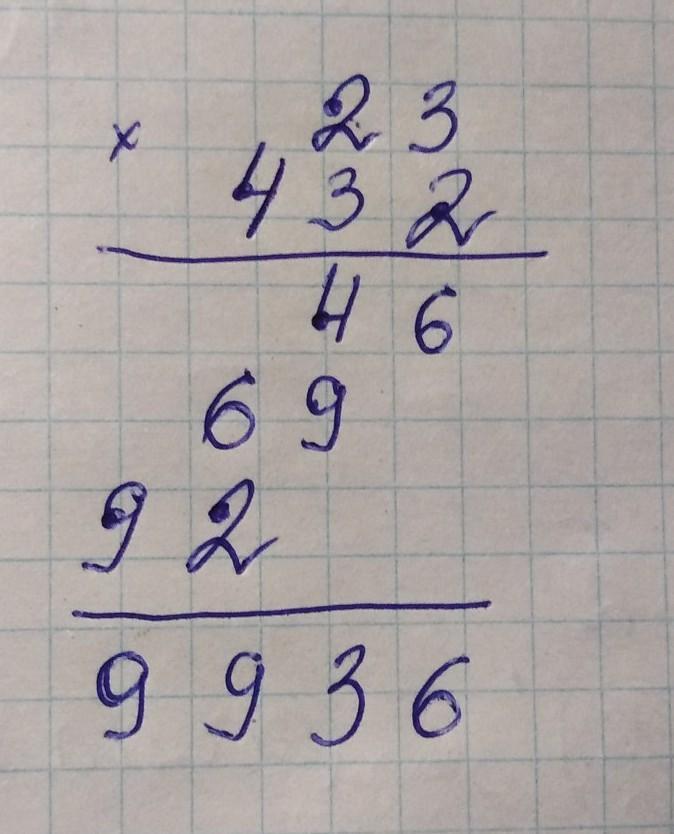 × 23
432
46
69
92
9936